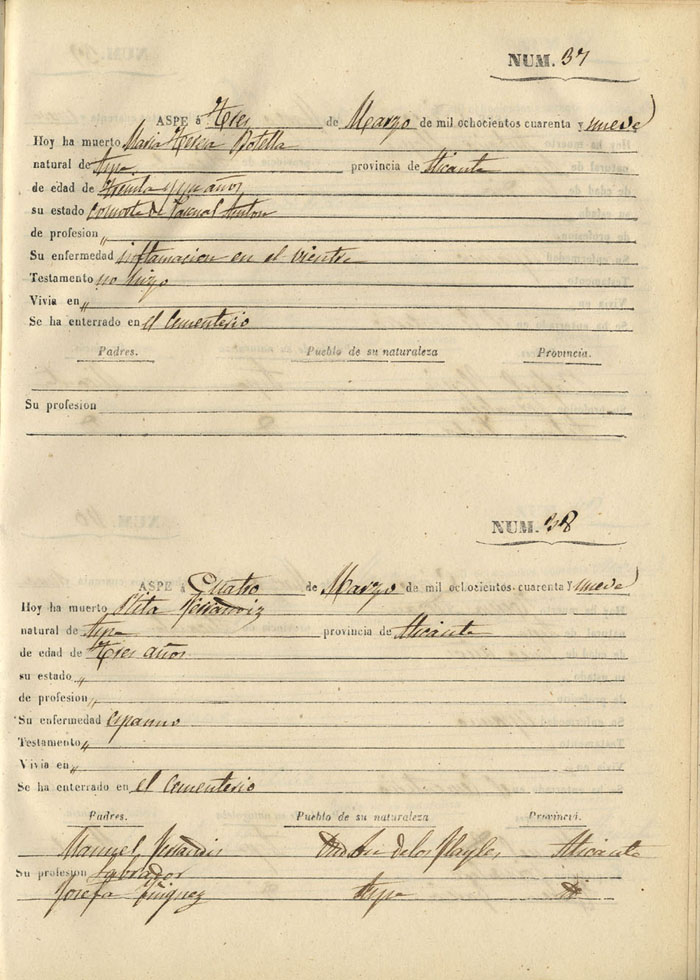 NUM. 37
ASPE á Tres de Marzo de mil ochocientos cuarenta y nueve
Hoy ha muerto Maria Teresa Botella
natural de Aspe provincia de Alicante
de edad de treinta y un años
su estado consorte de Pascual
de profesion „
Su enfermedad inflamacion en el vientre
Testamento no hizo
Vivia en „
Se ha enterrado en el Cementerio
Padres. Pueblo de su naturaleza Provincia.
Su profesion
NUM. 38
ASPE á Cuatro de Marzo de mil ochocientos cuarenta y nueve
Hoy ha muerto Rita
natural de Aspe provincia de Alicante
de edad de Tres años
su estado „
de profesion „
Su enfermedad espasmo
Testamento „
Vivia en „
Se ha enterrado en el Cementerio
Padres. Pueblo de su naturaleza Provincia.
Manuel de los Alicante
Su profesion Labrador
Josefa Iñiguez Aspe